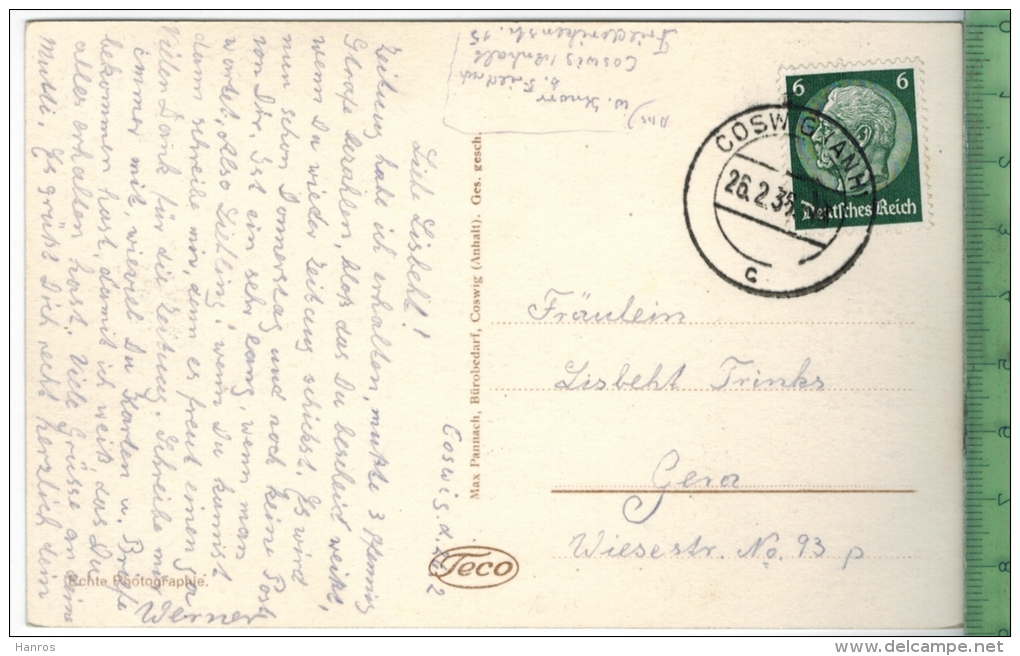 6 6
COSWIG (ANH)
26.2.35
Deutsches Reich
c
Abs)
W. Knorr
b. Friedrich
Coswig Anhalt
Friederikenstr. 15
Coswig. d.
Liebe Lisbeht!
Zeitung habe ich erhalten, mußte 3 Pfennig
Strafe bezahlen, blos das Du bescheid weißt,
wenn Du wieder Zeitung schickst. Es wird
nun schon Donnerstag und noch keine Post
von Dir. Ist ein sehr lang, wenn man
wartet, Also Liebling, wenn Du kannst
dann schreibe mir, denn es freut einen ja
Vielen Dank für die Zeitung. Schreibe mir
immer mit, wieviel Du Karten u. Briefe
bekommen hast, damit ich weiß das Du
alles erhalten hast. Viele Grüsse an deine
Mutti. Es grüßt Dich recht herzlich dein
Werner
Echte Photographie.
Max Pannach, Bürobedarf, Coswig (Anhalt). Ges. gesch.
Teco
Fräulein
Lisbeht Trinks
Gera
Wiesestr. No. 93 p
Hanros
delcampe.net